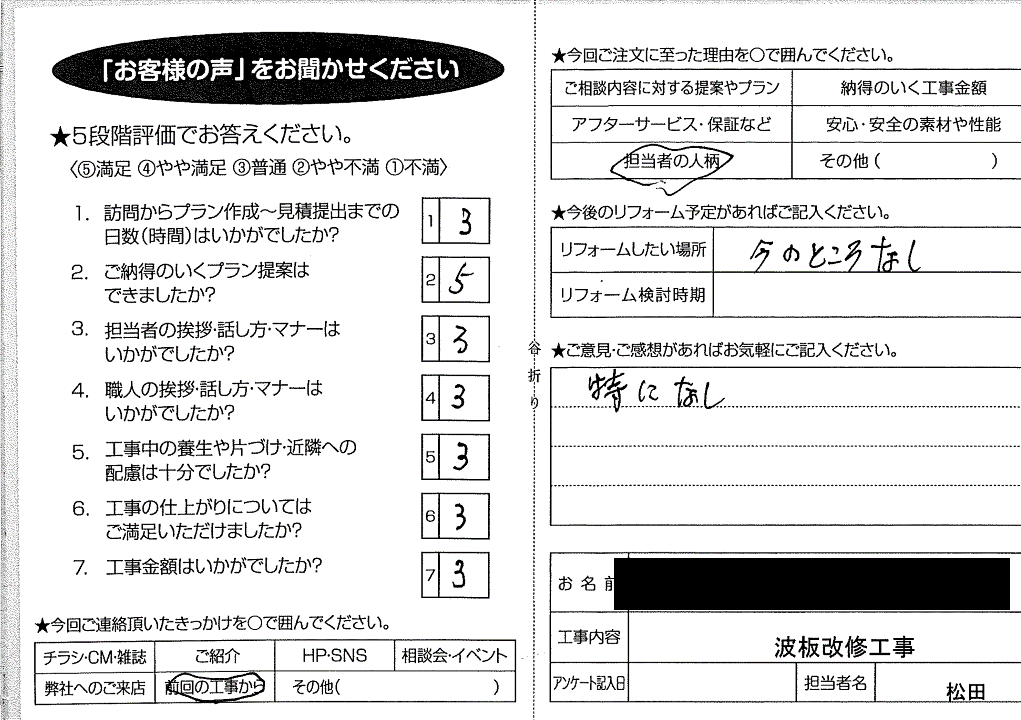 「お客様の声」をお聞かせください
★5段階評価でお答えください。
〈⑤満足 ④やや満足 ③普通 ②やや不満 ①不満〉
1. 訪問からプラン作成～見積提出までの
日数(時間)はいかがでしたか?
1 3
2. ご納得のいくプラン提案は
できましたか?
2 5
3. 担当者の挨拶・話し方・マナーは
いかがでしたか?
3 3
4. 職人の挨拶・話し方・マナーは
いかがでしたか?
4 3
5. 工事中の養生や片づけ・近隣への
配慮は十分でしたか?
5 3
6. 工事の仕上がりについては
ご満足いただけましたか?
6 3
7. 工事金額はいかがでしたか?
7 3
★今回ご連絡頂いたきっかけを〇で囲んでください。
チラシ・CM・雑誌 ご紹介 HP・SNS 相談会・イベント
弊社へのご来店 前回の工事から その他( )
谷折り
★今回ご注文に至った理由を〇で囲んでください。
ご相談内容に対する提案やプラン 納得のいく工事金額
アフターサービス・保証など 安心・安全の素材や性能
担当者の人柄 その他( )
★今後のリフォーム予定があればご記入ください。
リフォームしたい場所 今のところなし
リフォーム検討時期
★ご意見・ご感想があればお気軽にご記入ください。
特になし
お名前
工事内容 波板改修工事
アンケート記入日 担当者名 松田